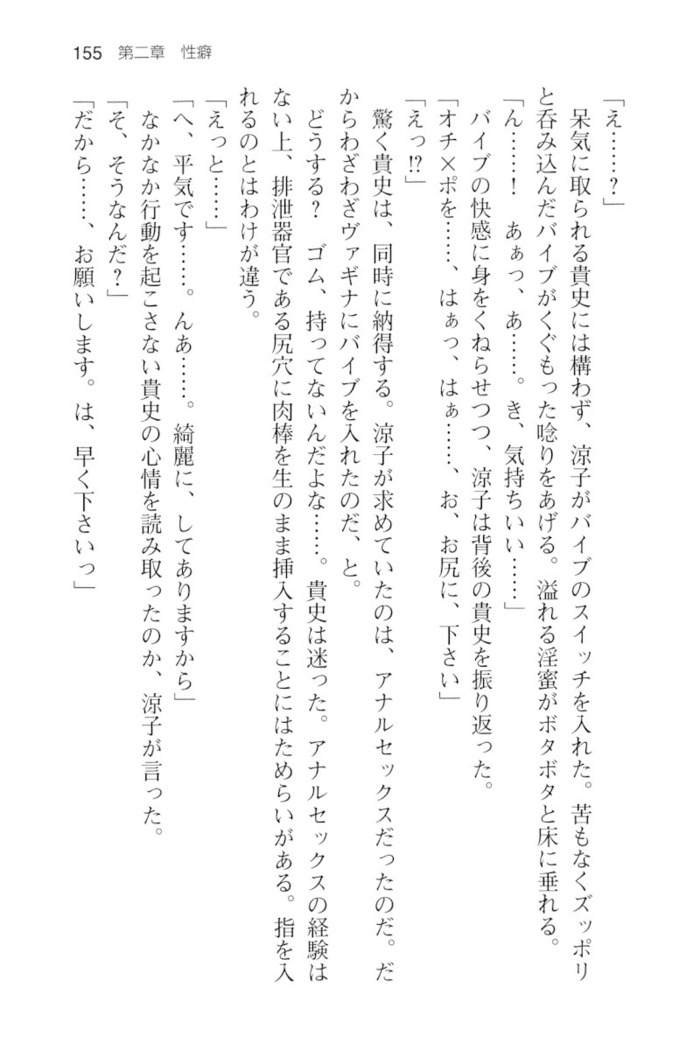 155 第二章 性癖
「え……？」
呆気に取られる貴史には構わず、涼子がバイブのスイッチを入れた。苦もなくズッポリ
と呑み込んだバイブがくぐもった唸りをあげる。溢れる淫蜜がボタボタと床に垂れる。
「ん……！　あぁっ、あ……。き、気持ちいい……」
バイブの快感に身をくねらせつつ、涼子は背後の貴史を振り返った。
「オチ×ポを……、はぁっ、はぁ……、お、お尻に、下さい」
「えっ!?」
驚く貴史は、同時に納得する。涼子が求めていたのは、アナルセックスだったのだ。だ
からわざわざヴァギナにバイブを入れたのだ、と。
どうする？　ゴム、持ってないんだよな……。貴史は迷った。アナルセックスの経験は
ない上、排泄器官である尻穴に肉棒を生のまま挿入することにはためらいがある。指を入
れるのとはわけが違う。
「えっと……」
「へ、平気です……。んあ……。綺麗に、してありますから」
なかなか行動を起こさない貴史の心情を読み取ったのか、涼子が言った。
「そ、そうなんだ？」
「だから……、お願いします。は、早く下さいっ」